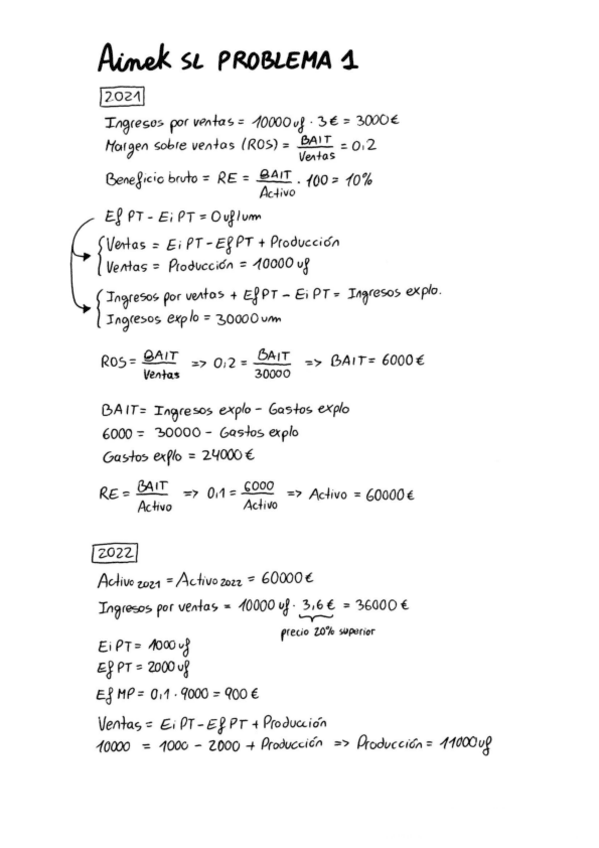 Ainek SL PROBLEMA 1
2021
Ingresos por ventas = 10000 uf · 3 € = 3000 €
Margen sobre ventas (ROS) = BAIT / Ventas = 0,2
Beneficio bruto = RE = BAIT / Activo · 100 = 10%
Ef PT - Ei PT = 0 uf/um
Ventas = Ei PT - Ef PT + Producción
Ventas = Producción = 10000 uf
Ingresos por ventas + Ef PT - Ei PT = Ingresos explo.
Ingresos explo = 30000 um
ROS = BAIT / Ventas => 0,2 = BAIT / 30000 => BAIT = 6000 €
BAIT = Ingresos explo - Gastos explo
6000 = 30000 - Gastos explo
Gastos explo = 24000 €
RE = BAIT / Activo => 0,1 = 6000 / Activo => Activo = 60000 €
2022
Activo 2021 = Activo 2022 = 60000 €
Ingresos por ventas = 10000 uf · 3,6 € = 36000 €
precio 20% superior
Ei PT = 1000 uf
Ef PT = 2000 uf
Ef MP = 0,1 · 9000 = 900 €
Ventas = Ei PT - Ef PT + Producción
10000 = 1000 - 2000 + Producción => Producción = 11000 uf